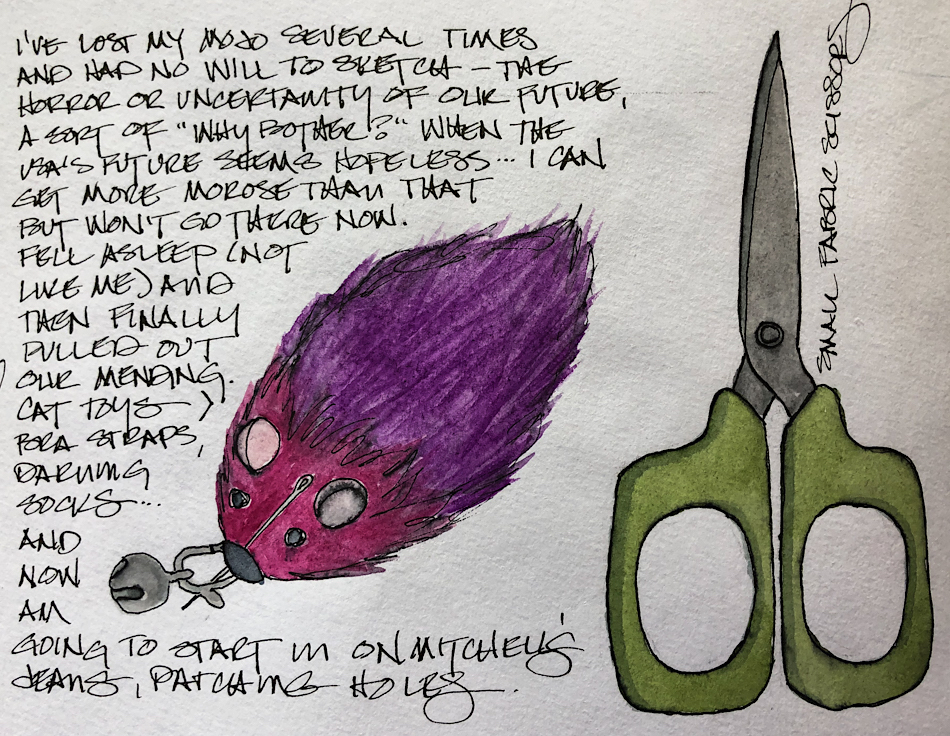 I'VE LOST MY MOJO SEVERAL TIMES
AND HAD NO WILL TO SKETCH – THE
HORROR OR UNCERTAINTY OF OUR FUTURE,
A SORT OF "WHY BOTHER?" WHEN THE
USA'S FUTURE SEEMS HOPELESS... I CAN
GET MORE MOROSE THAN THAT
BUT WON'T GO THERE NOW.
FELL ASLEEP (NOT
LIKE ME) AND
THEN FINALLY
PULLED OUT
OUR MENDING.
CAT TOYS →
BRA STRAPS,
DARNING
SOCKS...
AND
NOW
AM
GOING TO START IN ON MITCHELL'S
JEANS, PATCHING HOLES.
SMALL FABRIC SCISSORS